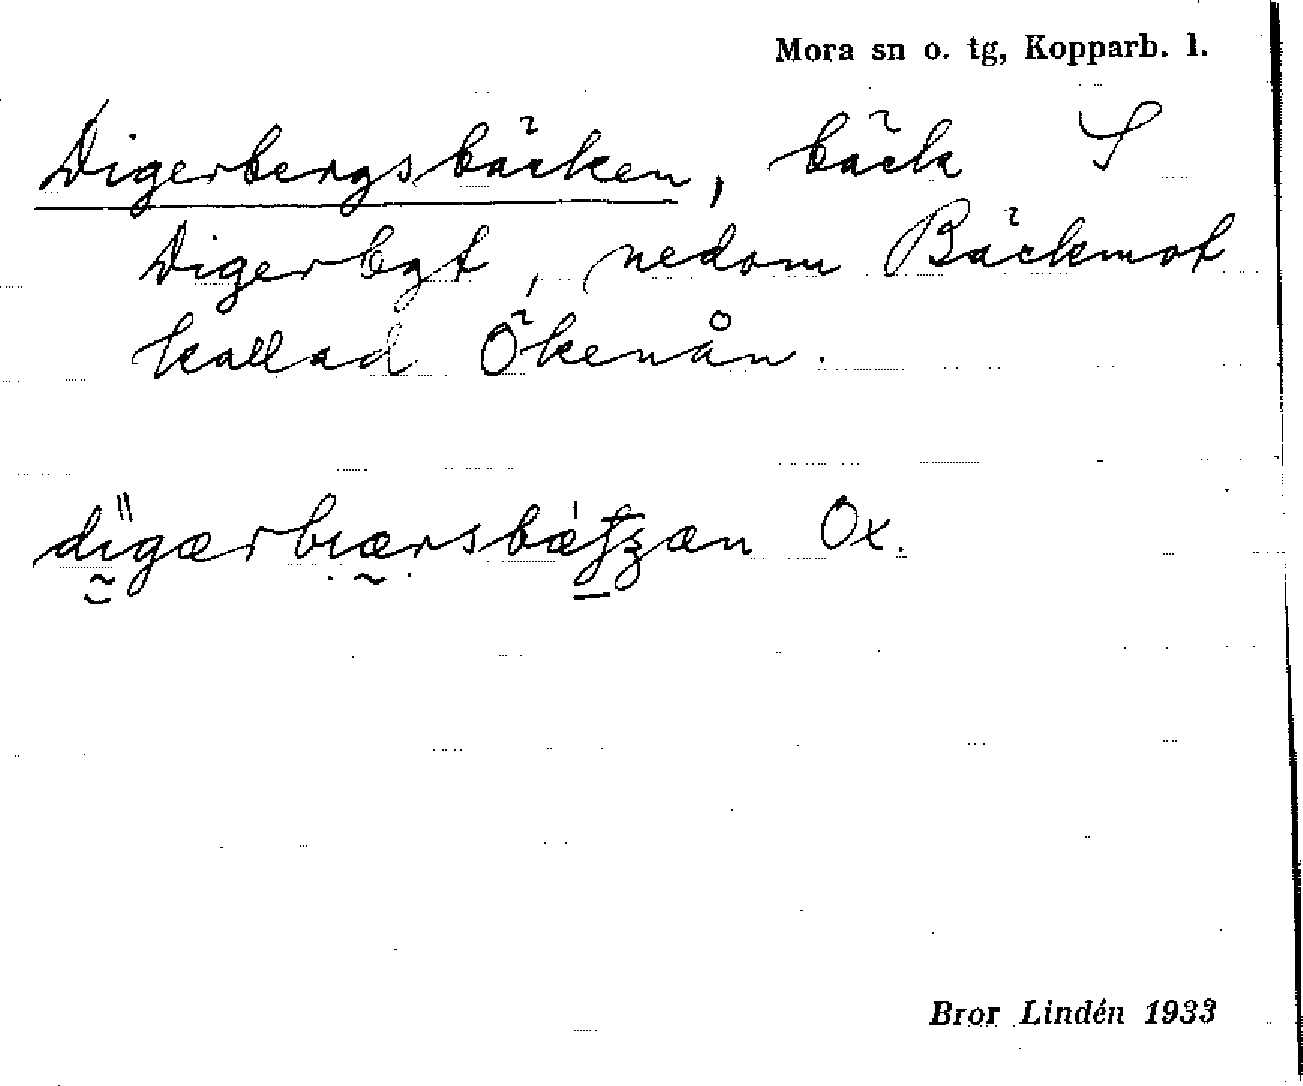 Mora sn o. tg, Kopparb. l.
Digerbergsbäcken, bäck S
Digerbgt, nedom Bäckmot
kallad Ökenån.
Ox.
Bror Lindén 1933